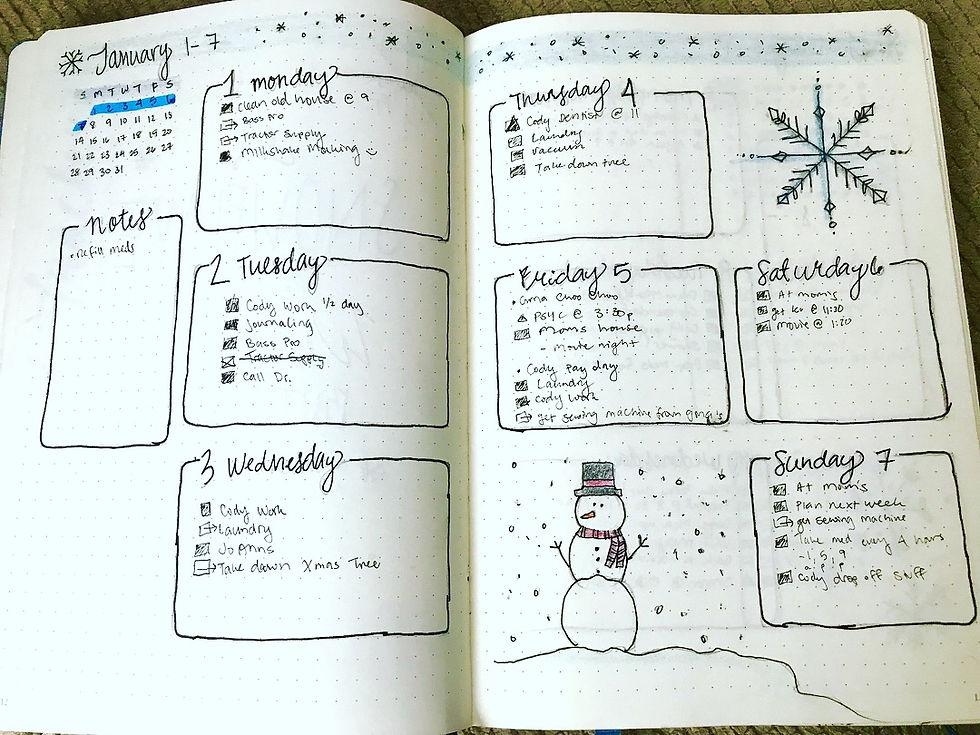 January 1-7
S M T W T F S
1 2 3 4 5 6
7 8 9 10 11 12 13
14 15 16 17 18 19 20
21 22 23 24 25 26 27
28 29 30 31
Notes
• Refill meds
1 monday
clean old house @ 9
Bass Pro
Tractor Supply
Milkshake Making
2 Tuesday
Cody Work 1/2 day
Journaling
Bass Pro
Tractor Supply
Call Dr.
3 Wednesday
Cody Work
Laundry
Take down Xmas Tree
Thursday 4
Cody Dentist @ 11
Laundry
Vacuum
Take down tree
Friday 5
• Gma Choo Choo
Psyc @ 3:30p.
Moms house
- Movie night
• Cody Pay day
Laundry
Cody Work
get sewing machine from
Saturday 6
At moms
get @ 11:30
Movie @ 1:20
Sunday 7
At moms
Plan next week
get sewing machine
Take med every 4 hours
-1, 5, 9
p p p
Cody drop off stuff